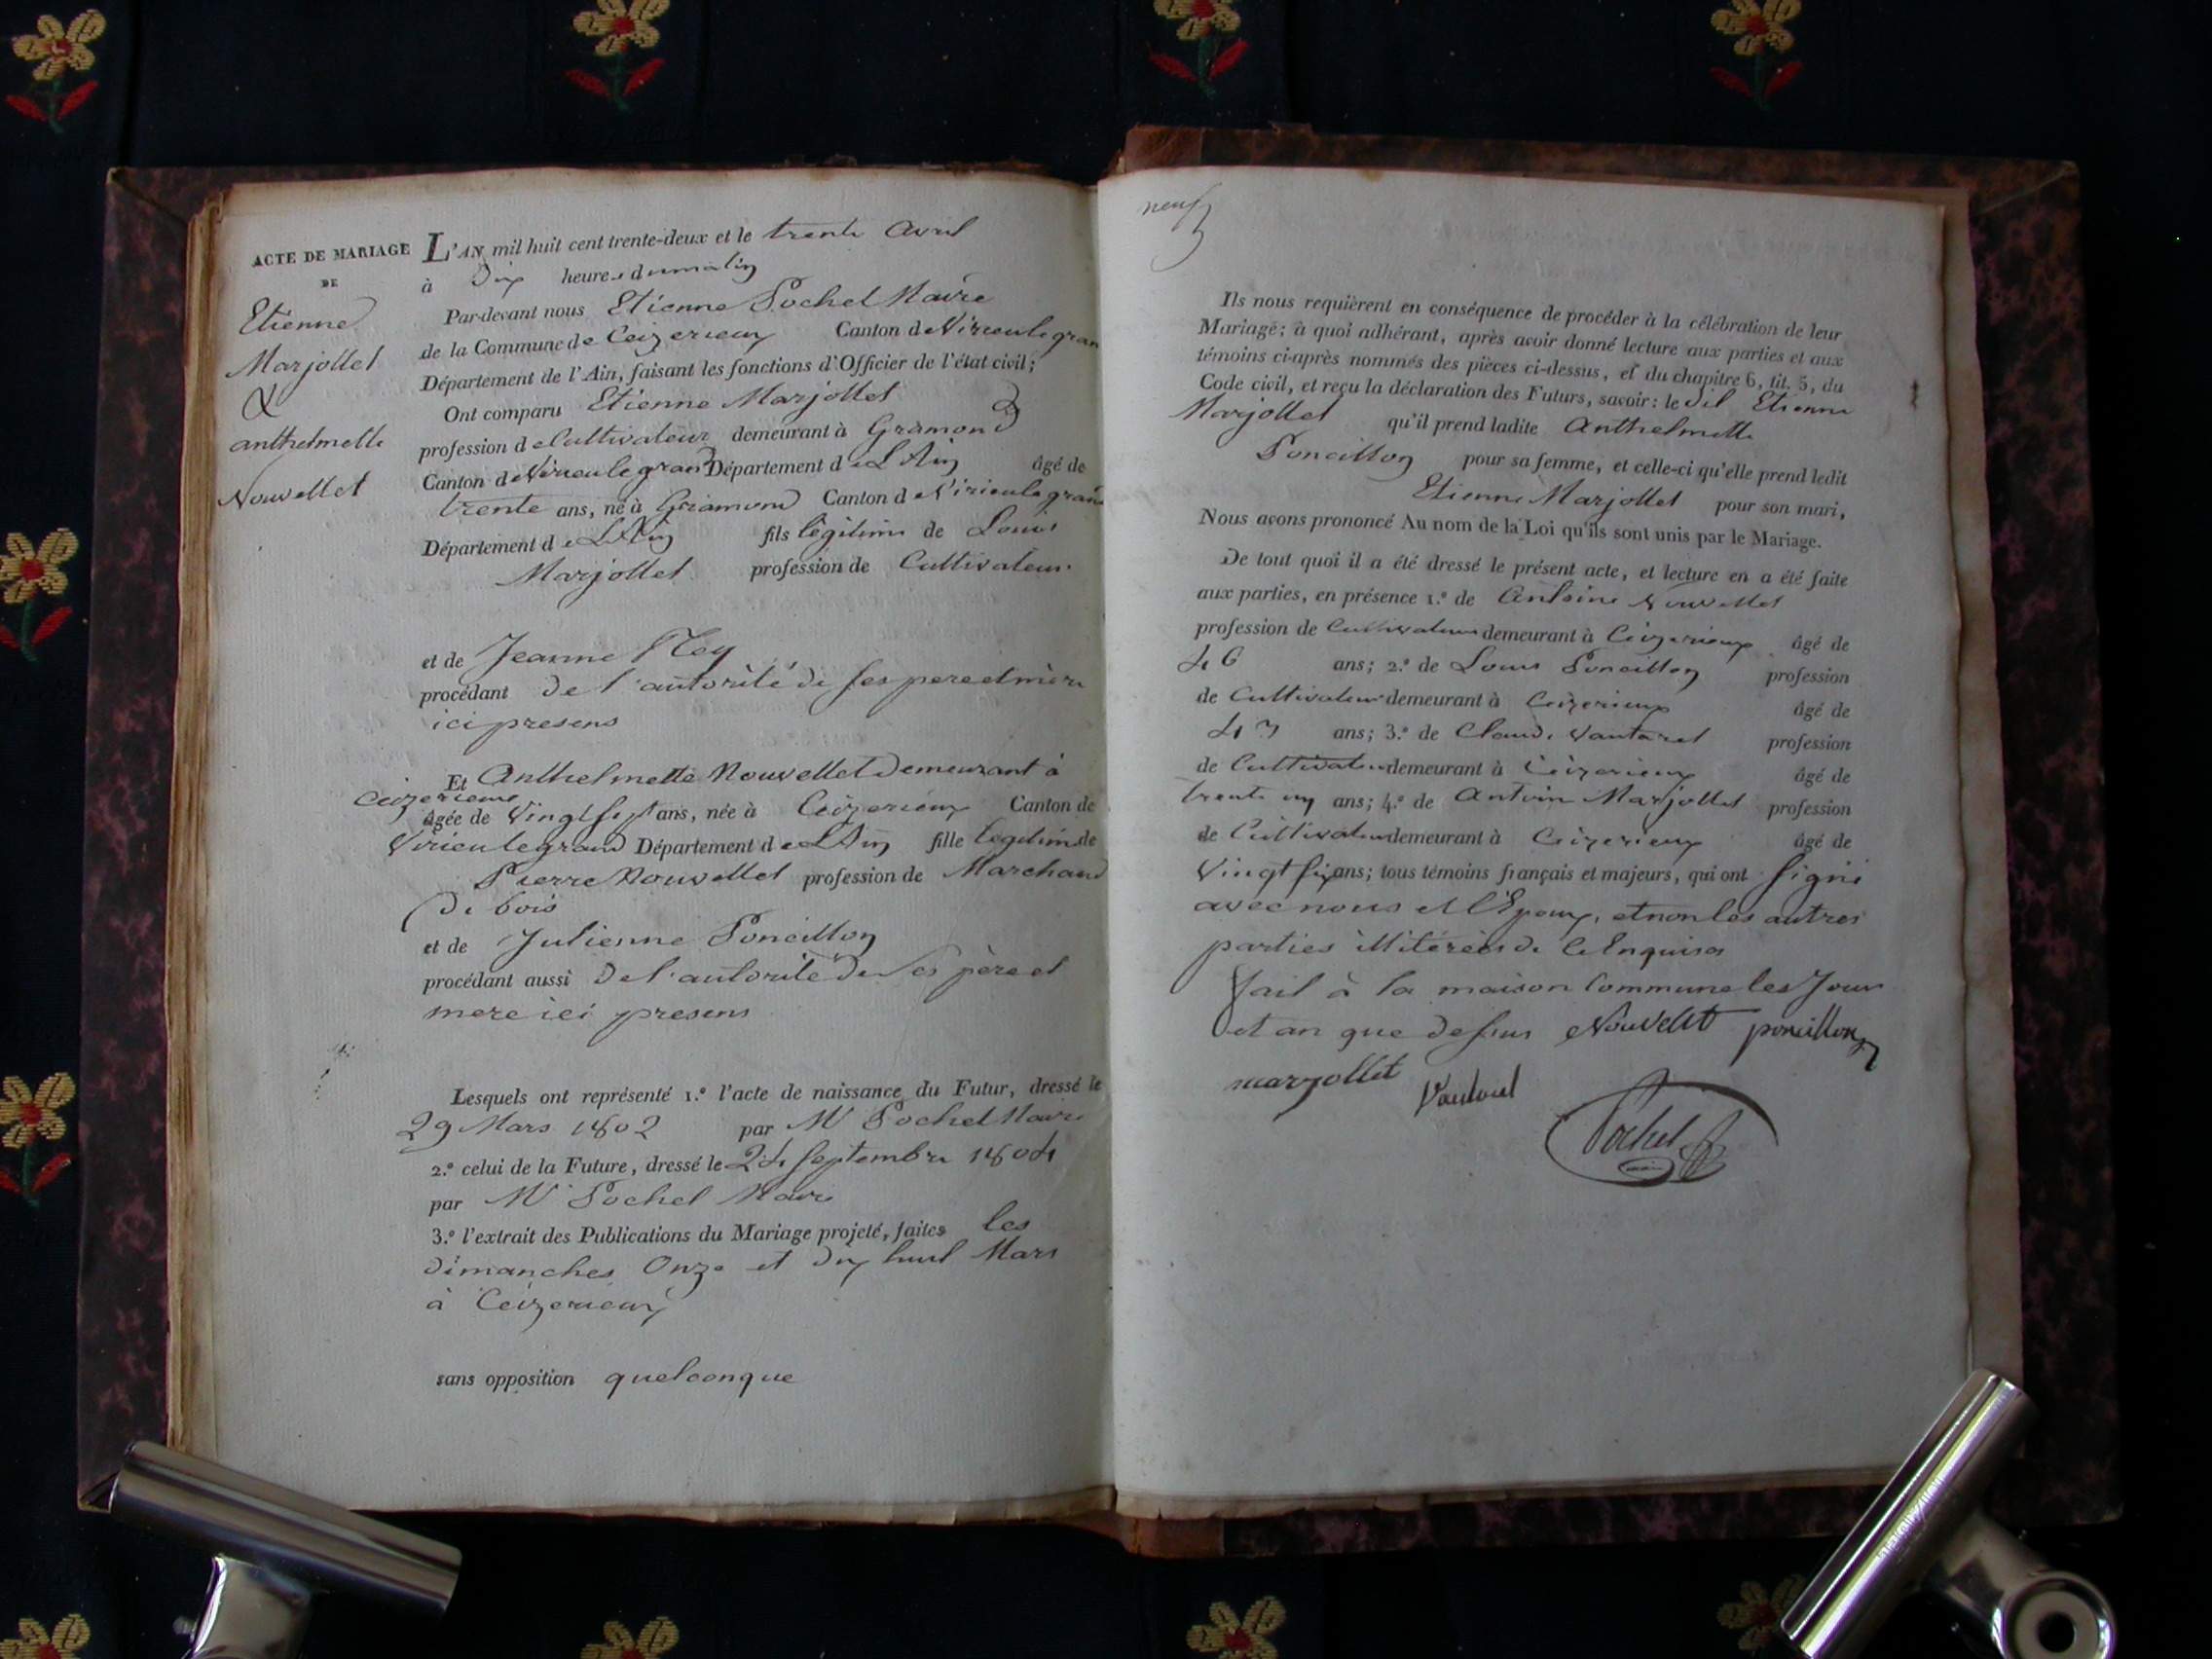 ACTE DE MARIAGE
DE
Etienne
Marjollet
&
anthelmette
Nouvellet
L'AN mil huit cent trente-deux et le trente Avril
à Dix heures du matin
Par-devant nous Etienne Pochet Maire
de la Commune de Ceizerieux Canton de Virieulegran
Département de l'Ain, faisant les fonctions d'Officier de l'état civil;
Ont comparu Etienne Marjollet
profession de Cultivateur demeurant à Gramond
Canton de Virieulegrand Département de L'Ain âgé de
trente ans, né à Gramond Canton de Virieulegrand
Département de L'Ain fils légitime de Louis
Marjollet profession de Cultivateur
et de Jeanne Rey
procédant de l'autorité de ses pere et mère
ici presens
Et Anthelmette Nouvellet Demeurant à
Ceizerieux
âgée de Vingt sept ans, née à Ceizerieux Canton de
Virieulegrand Département de L'Ain fille légitime de
Pierre Nouvellet profession de Marchand
de bois
et de Julienne Poncillon
procédant aussi De l'autorité de ses père et
mere ici presens
Lesquels ont représenté 1.º l'acte de naissance du Futur, dressé le
29 Mars 1802 par Mr Pochet Maire
2.º celui de la Future, dressé le 24 septembre 1804
par Mr Pochet Maire
3.º l'extrait des Publications du Mariage projeté, faites les
dimanches Onze et dix huit Mars
à Ceizerieux
sans opposition quelconque
neuf
Ils nous requièrent en conséquence de procéder à la célébration de leur
Mariage; à quoi adhérant, après avoir donné lecture aux parties et aux
témoins ci-après nommés des pièces ci-dessus, et du chapitre 6, tit. 5, du
Code civil, et reçu la déclaration des Futurs, savoir: le dit Etienne
Marjollet qu'il prend ladite Anthelmette
Poncillon pour sa femme, et celle-ci qu'elle prend ledit
Etienne Marjollet pour son mari,
Nous avons prononcé Au nom de la Loi qu'ils sont unis par le Mariage.
De tout quoi il a été dressé le présent acte, et lecture en a été faite
aux parties, en présence 1.º de Antoine Nouvellet
profession de Cultivateur demeurant à Ceizerieux âgé de
46 ans; 2.º de Louis Poncillon profession
de Cultivateur demeurant à Ceizerieux âgé de
43 ans; 3.º de Claude Vautaret profession
de Cultivateur demeurant à Ceizerieux âgé de
trente un ans; 4.º de Antoin Marjollet profession
de Cultivateur demeurant à Ceizerieux âgé de
Vingt six ans; tous témoins français et majeurs, qui ont signé
avec nous et l'Epoux, et non les autres
parties illitérées de ce Enquises
fait à la maison Commune les Jour
et an que dessus Nouvellet poncillon
marjollet
Pochet